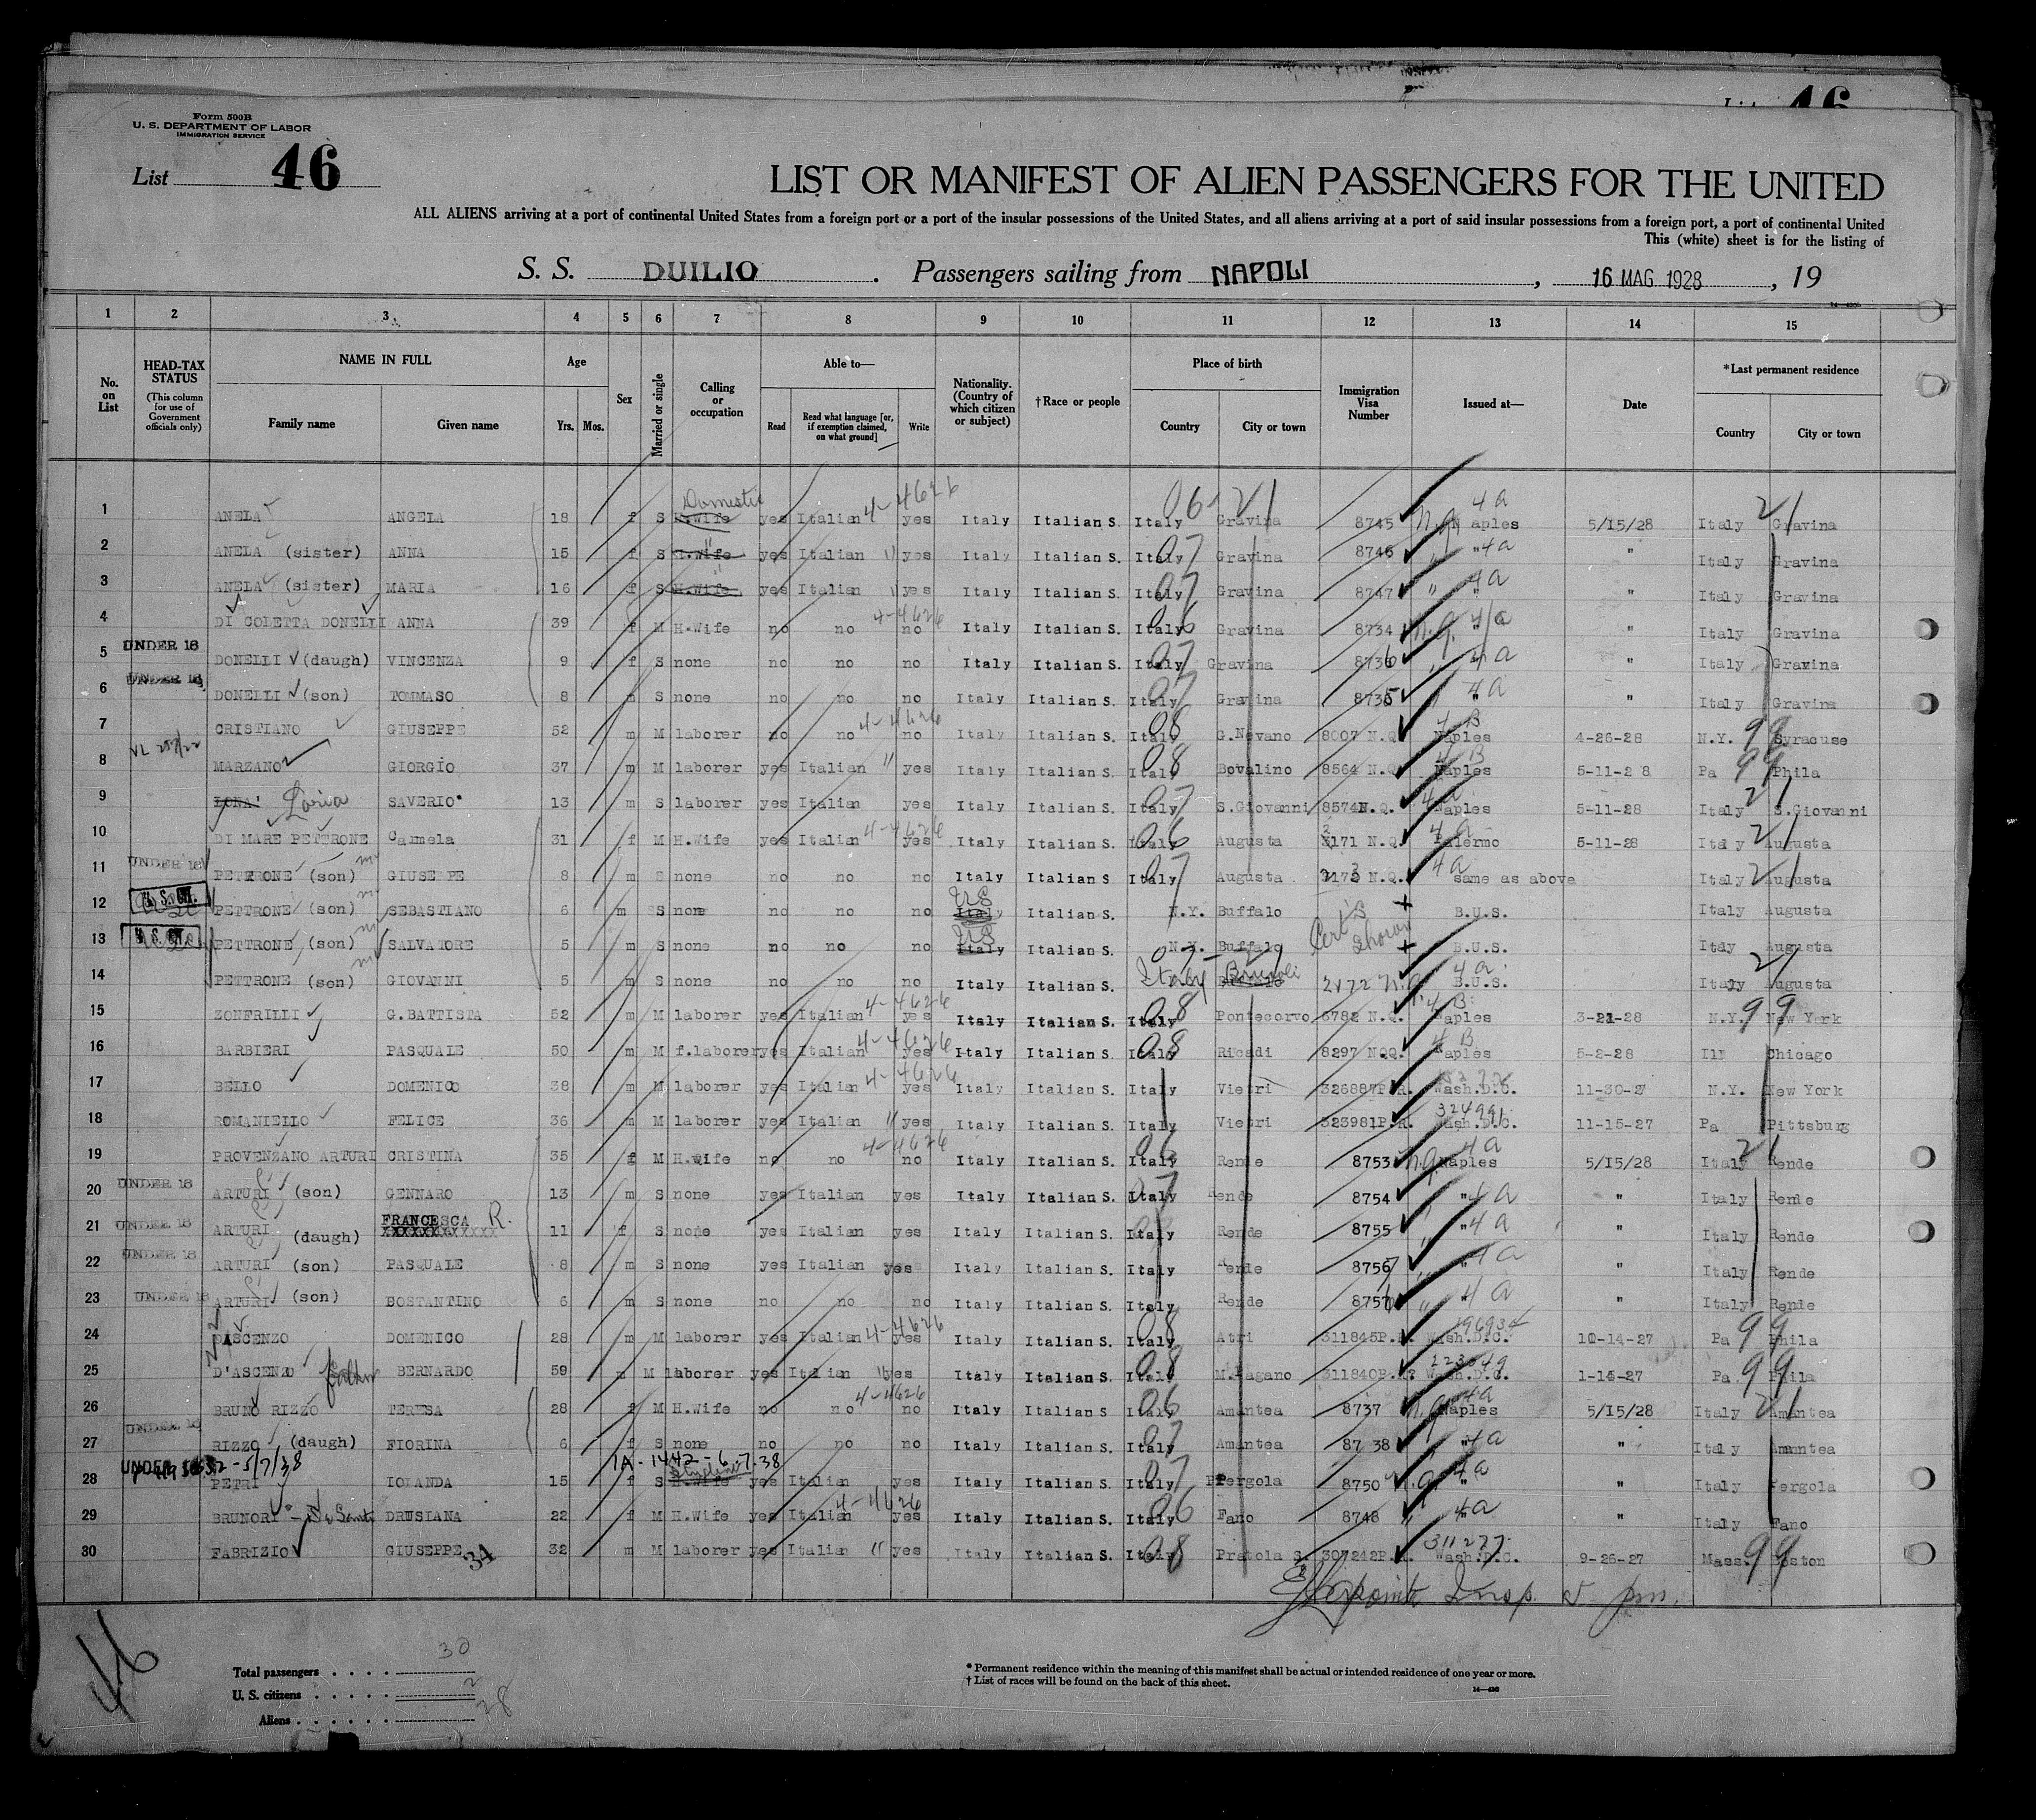 Form 500B
U. S. DEPARTMENT OF LABOR
IMMIGRATION SERVICE
List 46
LIST OR MANIFEST OF ALIEN PASSENGERS FOR THE UNITED
ALL ALIENS arriving at a port of continental United States from a foreign port or a port of the insular possessions of the United States, and all aliens arriving at a port of said insular possessions from a foreign port, a port of continental United
This (white) sheet is for the listing of
S. S. DUILIO. Passengers sailing from NAPOLI, 16 MAG 1928, 19
1 2 3 4 5 6 7 8 9 10 11 12 13 14 15
No. on List HEAD-TAX STATUS (This column for use of Government officials only) NAME IN FULL Family name Given name Age Yrs. Mos. Sex Married or single Calling or occupation Able to— Read Read what language [or, if exemption claimed, on what ground] Write Nationality. (Country of which citizen or subject) †Race or people Place of birth Country City or town Immigration Visa Number Issued at— Date *Last permanent residence Country City or town
1 ANELA ANGELA 18 f S H.Wife Domestic yes Italian 4-4626 yes Italy Italian S. Italy 06-21 Gravina 8745 N.Q. Naples 4a 5/15/28 Italy 21 Gravina
2 ANELA (sister) ANNA 15 f S H.Wife " yes Italian " yes Italy Italian S. Italy 07 Gravina 8746 " " 4a " Italy Gravina
3 ANELA (sister) MARIA 16 f S H.Wife yes Italian " yes Italy Italian S. Italy 07 Gravina 8747 " " 4a " Italy Gravina
4 DI COLETTA DONELLI ANNA 39 f M H.Wife no no 4-4626 no Italy Italian S. Italy 06 Gravina 8734 N.Q. " 4a " Italy Gravina
5 UNDER 16 DONELLI (daugh) VINCENZA 9 f S none no no no Italy Italian S. Italy 07 Gravina 8736 " 4a " Italy Gravina
6 UNDER 16 DONELLI (son) TOMMASO 8 m S none no no no Italy Italian S. Italy 07 Gravina 8735 " 4a " Italy Gravina
7 CRISTIANO GIUSEPPE 52 m M laborer no no 4-4626 no Italy Italian S. Italy 08 G.Nevano 8007 N.Q. Naples 4B 4-26-28 N.Y. 99 Syracuse
8 MARZANO GIORGIO 37 m M laborer yes Italian " yes Italy Italian S. Italy 08 Bovalino 8564 N.Q. Naples 4B 5-11-28 Pa 99 Phila
9 Loria SAVERIO 13 m S laborer yes Italian yes Italy Italian S. Italy 07 S.Giovanni 8574N.Q. Naples 4a 5-11-28 Italy 21 S.Giovanni
10 DI MARE PETTRONE Carmela 31 f M H.Wife yes Italian 4-4626 yes Italy Italian S. Italy 06 Augusta 2171 N.Q. Palermo 4a 5-11-28 Italy 21 Augusta
11 UNDER 16 PETTRONE (son) GIUSEPPE 8 m S none no no no Italy Italian S. Italy 07 Augusta 2173 N.Q. 4a same as above Italy 21 Augusta
12 U.S. CIT. PETTRONE (son) SEBASTIANO 6 m S none no no no Italy US Italian S. N.Y. Buffalo B.U.S. Italy Augusta
13 U.S. CIT. PETTRONE (son) SALVATORE 5 m S none no no no Italy US Italian S. N.Y. Buffalo B.U.S. Italy Augusta
14 PETTRONE (son) GIOVANNI 5 m S none no no no Italy Italian S. Italy 07-21 2172 N.Q. 4a B.U.S. Italy 21 Augusta
15 ZONFRILLI G.BATTISTA 52 m M laborer yes Italian 4-4626 yes Italy Italian S. Italy 08 Pontecorvo 5782 N.Q. Naples 4B 3-21-28 N.Y. 99 New York
16 BARBIERI PASQUALE 50 m M f.laborer yes Italian 4-4626 yes Italy Italian S. Italy 08 Ricadi 8297 NQQ. Naples 4B 5-2-28 Ill Chicago
17 BELLO DOMENICO 38 m M laborer yes Italian 4-4626 yes Italy Italian S. Italy Vietri 326887P.R. Wash.D.C. 11-30-27 N.Y. New York
18 ROMANIELLO FELICE 36 m M laborer yes Italian " yes Italy Italian S. Italy Vietri 323981P.R. Wash.D.C. 11-15-27 Pa Pittsburg
19 PROVENZANO ARTURI CRISTINA 35 f M H.Wife no no 4-4626 no Italy Italian S. Italy 06 Rende 8753 N.Q. Naples 4a 5/15/28 Italy 21 Rende
20 UNDER 16 ARTURI (son) GENNARO 13 m S none yes Italian yes Italy Italian S. Italy 07 Rende 8754 " 4a " Italy Rende
21 UNDER 16 ARTURI (daugh) FRANCESCA R. 11 f S none yes Italian yes Italy Italian S. Italy Rende 8755 " 4a " Italy Rende
22 UNDER 16 ARTURI (son) PASQUALE 8 m S none yes Italian yes Italy Italian S. Italy Rende 8756 " 4a " Italy Rende
23 UNDER 16 ARTURI (son) BOSTANTINO 6 m S none no no no Italy Italian S. Italy Rende 8757 " 4a " Italy Rende
24 DASCENZO DOMENICO 28 m M laborer yes Italian 4-4626 yes Italy Italian S. Italy 08 Atri 311845P.R. 196934 Wash.D.C. 10-14-27 Pa 99 Phila
25 D'ASCENZO father BERNARDO 59 m M laborer yes Italian " yes Italy Italian S. Italy 08 311840P.R. 223049 Wash.D.C. 1-15-27 Pa 99 Phila
26 BRUNO RIZZO TERESA 28 f M H.Wife no no 4-4626 no Italy Italian S Italy 06 Amantea 8737 N.Q. Naples 4a 5/15/28 Italy 21 Amantea
27 UNDER 16 RIZZO (daugh) FIORINA 6 f S none no no no Italy Italian S Italy 07 Amantea 8738 " 4a " Italy Amantea
1A-1442-6-7-38
28 UNDER 16 PETRI IOLANDA 15 f S H.Wife yes Italian yes Italy Italian S. Italy 07 Pergola 8750 N.Q. 4a " Italy Pergola
29 BRUNORI DRUSIANA 22 f M H.Wife yes Italian 4-4626 yes Italy Italian S. Italy 06 Fano 8748 " 4a " Italy Fano
30 FABRIZIO GIUSEPPE 34 32 m M laborer yes Italian " yes Italy Italian S. Italy 08 Pratola S. 307242P.R. 311277 Wash.D.C. 9-26-27 Mass. 99 Boston
46
Total passengers 30
U. S. citizens 2
Aliens 28
* Permanent residence within the meaning of this manifest shall be actual or intended residence of one year or more.
† List of races will be found on the back of this sheet.
14—430